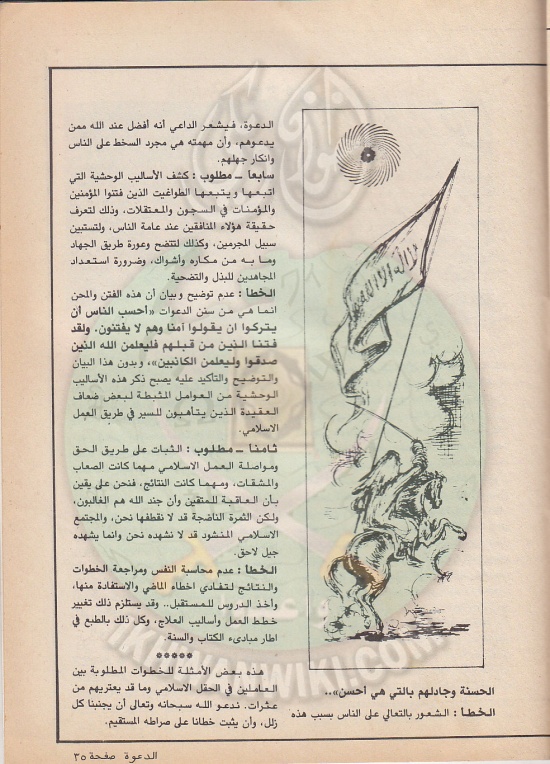 الحسنة وجادلهم بالتي هي أحسن»..
الخطأ : الشعور بالتعالي على الناس بسبب هذه
الدعوة، فيشعر الداعي أنه أفضل عند الله ممن
يدعوهم، وأن مهمته هي مجرد السخط على الناس
وانكار جهلهم.
سابعاً – مطلوب : كشف الأساليب الوحشية التي
اتبعها ويتبعها الطواغيت الذين فتنوا المؤمنين
والمؤمنات في السجون والمعتقلات، وذلك لتعرف
حقيقة هؤلاء المنافقين عند عامة الناس، ولتستبين
سبيل المجرمين، وكذلك لتتضح وعورة طريق الجهاد
وما به من مكاره وأشواك، وضرورة استعداد
المجاهدين للبذل والتضحية.
الخطأ : عدم توضيح وبيان أن هذه الفتن والمحن
انما هي من سنن الدعوات «أحسب الناس أن
يتركوا ان يقولوا آمنا وهم لا يفتنون. ولقد
فتنا الذين من قبلهم فليعلمن الله الذين
صدقوا وليعلمن الكاذبين»، وبدون هذا البيان
والتوضيح والتأكيد عليه يصبح ذكر هذه الأساليب
الوحشية من العوامل المثبطة لبعض ضعاف
العقيدة الذين يتأهبون للسير في طريق العمل
الاسلامي.
ثامناً – مطلوب : الثبات على طريق الحق
ومواصلة العمل الاسلامي مهما كانت الصعاب
والمشقات، ومهما كانت النتائج، فنحن على يقين
بأن العاقبة للمتقين وأن جند الله هم الغالبون،
ولكن الثمرة الناضجة قد لا نقطفها نحن، والمجتمع
الاسلامي المنشود قد لا نشهده نحن وانما يشهده
جيل لاحق.
الخطأ : عدم محاسبة النفس ومراجعة الخطوات
والنتائج لتفادي اخطاء الماضي والاستفادة منها،
وأخذ الدروس للمستقبل.. وقد يستلزم ذلك تغيير
خطط العمل وأساليب العلاج، وكل ذلك بالطبع في
اطار مبادىء الكتاب والسنة.
*****
هذه بعض الأمثلة للخطوات المطلوبة بين
العاملين في الحقل الاسلامي وما قد يعتريهم من
عثرات. ندعو الله سبحانه وتعالى أن يجنبنا كل
زلل، وأن يثبت خطانا على صراطه المستقيم.
الدعوة صفحة ٣٥
IKHWANWIKI.COM